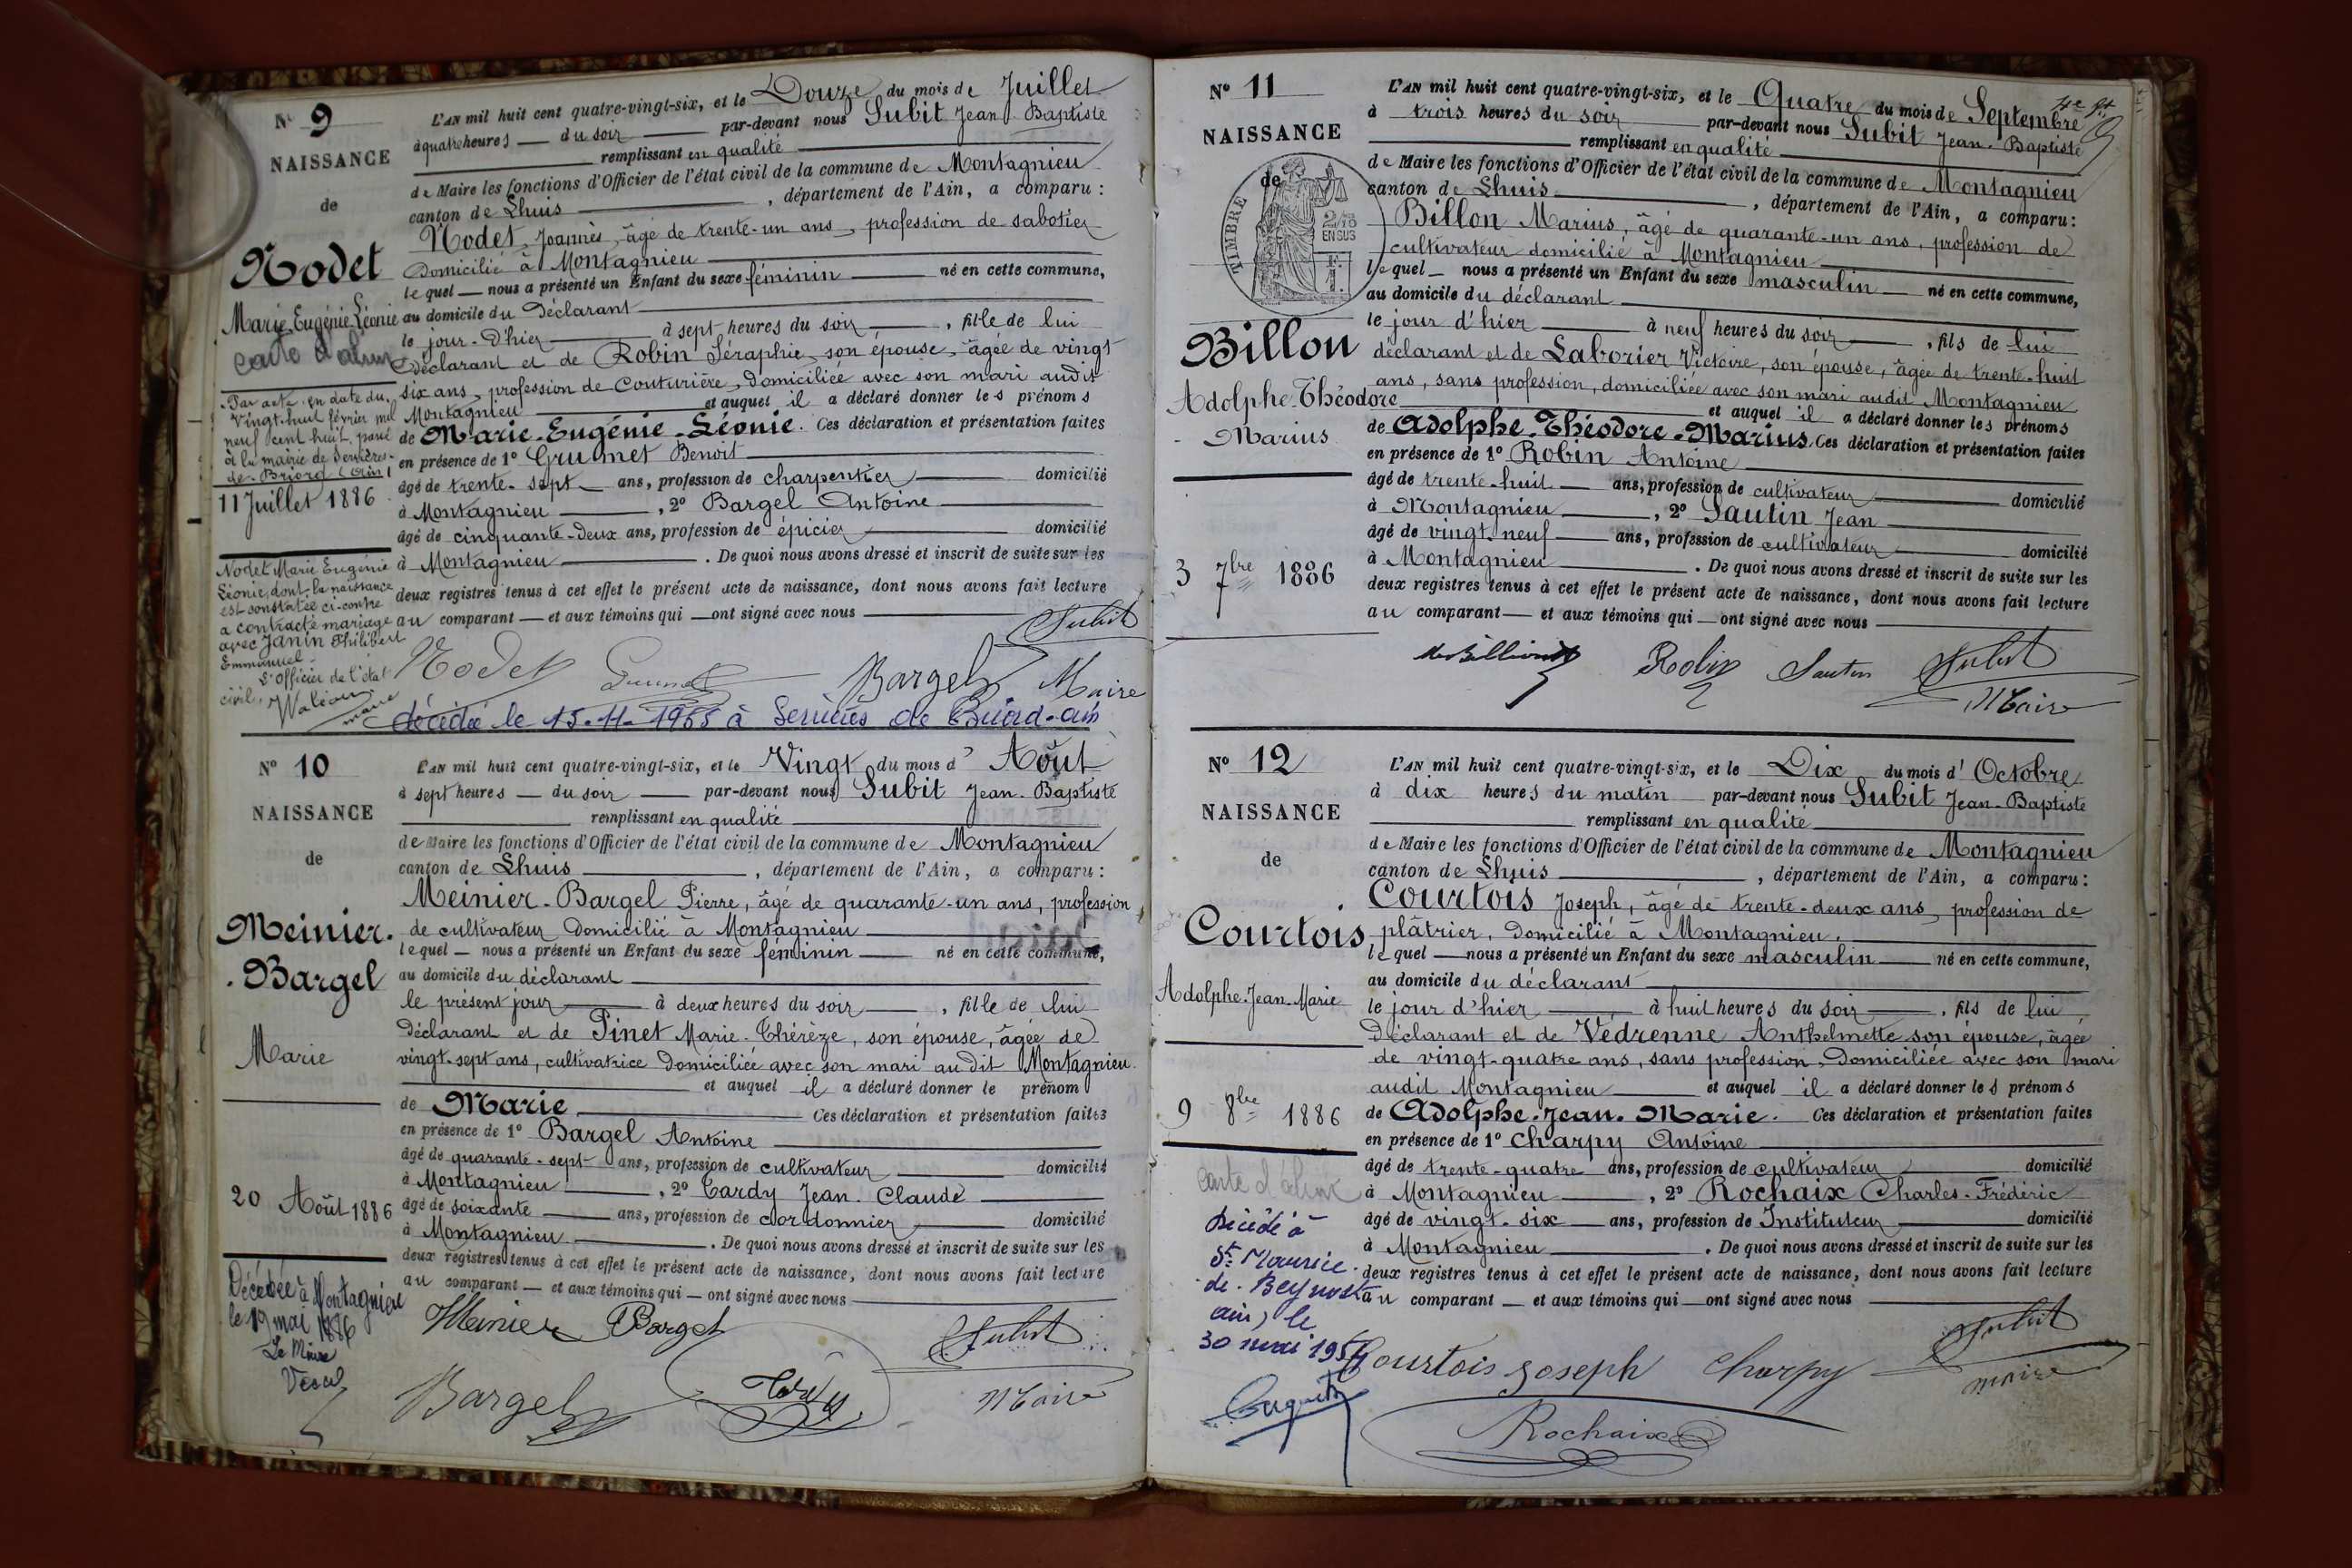 N° 9
NAISSANCE
de
Nodet
Marie Eugénie Léonie
Par acte en date du
Vingt-huit février mil
neuf cent huit, passé
à la mairie de Serrières-
de-Briord (Ain)
11 Juillet 1886
Nodet Marie Eugénie
Léonie, dont la naissance
est constatée ci-contre
a contracté mariage
avec Janin Philibert
Emmanuel.
L'Officier de l'état
civil,
maire
L'AN mil huit cent quatre-vingt-six, et le Douze du mois de Juillet
à quatre heures du soir par-devant nous Subit Jean-Baptiste
remplissant en qualité
de Maire les fonctions d'Officier de l'état civil de la commune de Montagnieu
canton de Lhuis, département de l'Ain, a comparu :
Nodet, Joannès, âgé de trente-un ans, profession de sabotier
domicilié à Montagnieu
lequel nous a présenté un Enfant du sexe féminin né en cette commune,
au domicile du Déclarant
le jour d'hier à sept heures du soir, fille de lui
Déclarant et de Robin Séraphie, son épouse, âgée de vingt
six ans, profession de Couturière, domiciliée avec son mari audit
Montagnieu et auquel il a déclaré donner les prénoms
de Marie-Eugénie-Léonie. Ces déclaration et présentation faites
en présence de 1° Grumet Benoit
âgé de trente-sept ans, profession de charpentier domicilié
à Montagnieu, 2° Bargel Antoine
âgé de cinquante-deux ans, profession de épicier domicilié
à Montagnieu. De quoi nous avons dressé et inscrit de suite sur les
deux registres tenus à cet effet le présent acte de naissance, dont nous avons fait lecture
au comparant et aux témoins qui ont signé avec nous
Subit
Nodet Grumet Bargel Maire
décédée le 15-11-1965 à Serrières de Briord-ain
N° 10
NAISSANCE
de
Meinier-
Bargel
Marie
20 Août 1886
Décédée à Montagnieu
le 19 mai
Le Maire
L'AN mil huit cent quatre-vingt-six, et le Vingt du mois d'Août
à sept heures du soir par-devant nous Subit Jean-Baptiste
remplissant en qualité
de Maire les fonctions d'Officier de l'état civil de la commune de Montagnieu
canton de Lhuis, département de l'Ain, a comparu :
Meinier-Bargel Pierre, âgé de quarante-un ans, profession
de cultivateur domicilié à Montagnieu
lequel nous a présenté un Enfant du sexe féminin né en cette commune,
au domicile du déclarant
le présent jour à deux heures du soir, fille de lui
Déclarant et de Pinet Marie-Thérèze, son épouse, âgée de
vingt-sept ans, cultivatrice domiciliée avec son mari audit Montagnieu
et auquel il a déclaré donner le prénom
de Marie Ces déclaration et présentation faites
en présence de 1° Bargel Antoine
âgé de quarante-sept ans, profession de cultivateur domicilié
à Montagnieu, 2° Tardy Jean-Claude
âgé de soixante ans, profession de cordonnier domicilié
à Montagnieu. De quoi nous avons dressé et inscrit de suite sur les
deux registres tenus à cet effet le présent acte de naissance, dont nous avons fait lecture
au comparant et aux témoins qui ont signé avec nous
Meinier Bargel Subit
Bargel Tardy Maire
N° 11
NAISSANCE
de
TIMBRE
2/10
EN SUS
Billon
Adolphe-Théodore
Marius
3 7bre 1886
L'AN mil huit cent quatre-vingt-six, et le Quatre du mois de Septembre
à trois heures du soir par-devant nous Subit Jean-Baptiste
remplissant en qualité
de Maire les fonctions d'Officier de l'état civil de la commune de Montagnieu
canton de Lhuis, département de l'Ain, a comparu :
Billon Marius, âgé de quarante-un ans, profession de
cultivateur domicilié à Montagnieu
lequel nous a présenté un Enfant du sexe masculin né en cette commune,
au domicile du déclarant
le jour d'hier à neuf heures du soir, fils de lui
déclarant et de Laborier Victoire, son épouse, âgée de trente-huit
ans, sans profession, domiciliée avec son mari audit Montagnieu
et auquel il a déclaré donner les prénoms
de Adolphe-Théodore-Marius. Ces déclaration et présentation faites
en présence de 1° Robin Antoine
âgé de trente-huit ans, profession de cultivateur domicilié
à Montagnieu, 2° Sautin Jean
âgé de vingt-neuf ans, profession de cultivateur domicilié
à Montagnieu. De quoi nous avons dressé et inscrit de suite sur les
deux registres tenus à cet effet le présent acte de naissance, dont nous avons fait lecture
au comparant et aux témoins qui ont signé avec nous
Robin Sautin Subit
Maire
N° 12
NAISSANCE
de
Courtois
Adolphe-Jean-Marie
9 8bre 1886
Décédé à
St Maurice
de-Beynost
ain) le
30 mai
L'AN mil huit cent quatre-vingt-six, et le Dix du mois d'Octobre
à dix heures du matin par-devant nous Subit Jean-Baptiste
remplissant en qualité
de Maire les fonctions d'Officier de l'état civil de la commune de Montagnieu
canton de Lhuis, département de l'Ain, a comparu :
Courtois Joseph, âgé de trente-deux ans, profession de
plâtrier, domicilié à Montagnieu,
lequel nous a présenté un Enfant du sexe masculin né en cette commune,
au domicile du déclarant
le jour d'hier à huit heures du soir, fils de lui
Déclarant et de Védrenne Anthelmette son épouse, âgée
de vingt-quatre ans, sans profession, domiciliée avec son mari
audit Montagnieu et auquel il a déclaré donner les prénoms
de Adolphe-Jean-Marie. Ces déclaration et présentation faites
en présence de 1° Charpy Antoine
âgé de trente-quatre ans, profession de cultivateur domicilié
à Montagnieu, 2° Rochaix Charles-Frédéric
âgé de vingt-six ans, profession de Instituteur domicilié
à Montagnieu. De quoi nous avons dressé et inscrit de suite sur les
deux registres tenus à cet effet le présent acte de naissance, dont nous avons fait lecture
au comparant et aux témoins qui ont signé avec nous
Courtois Joseph Charpy Subit
maire
Rochaix